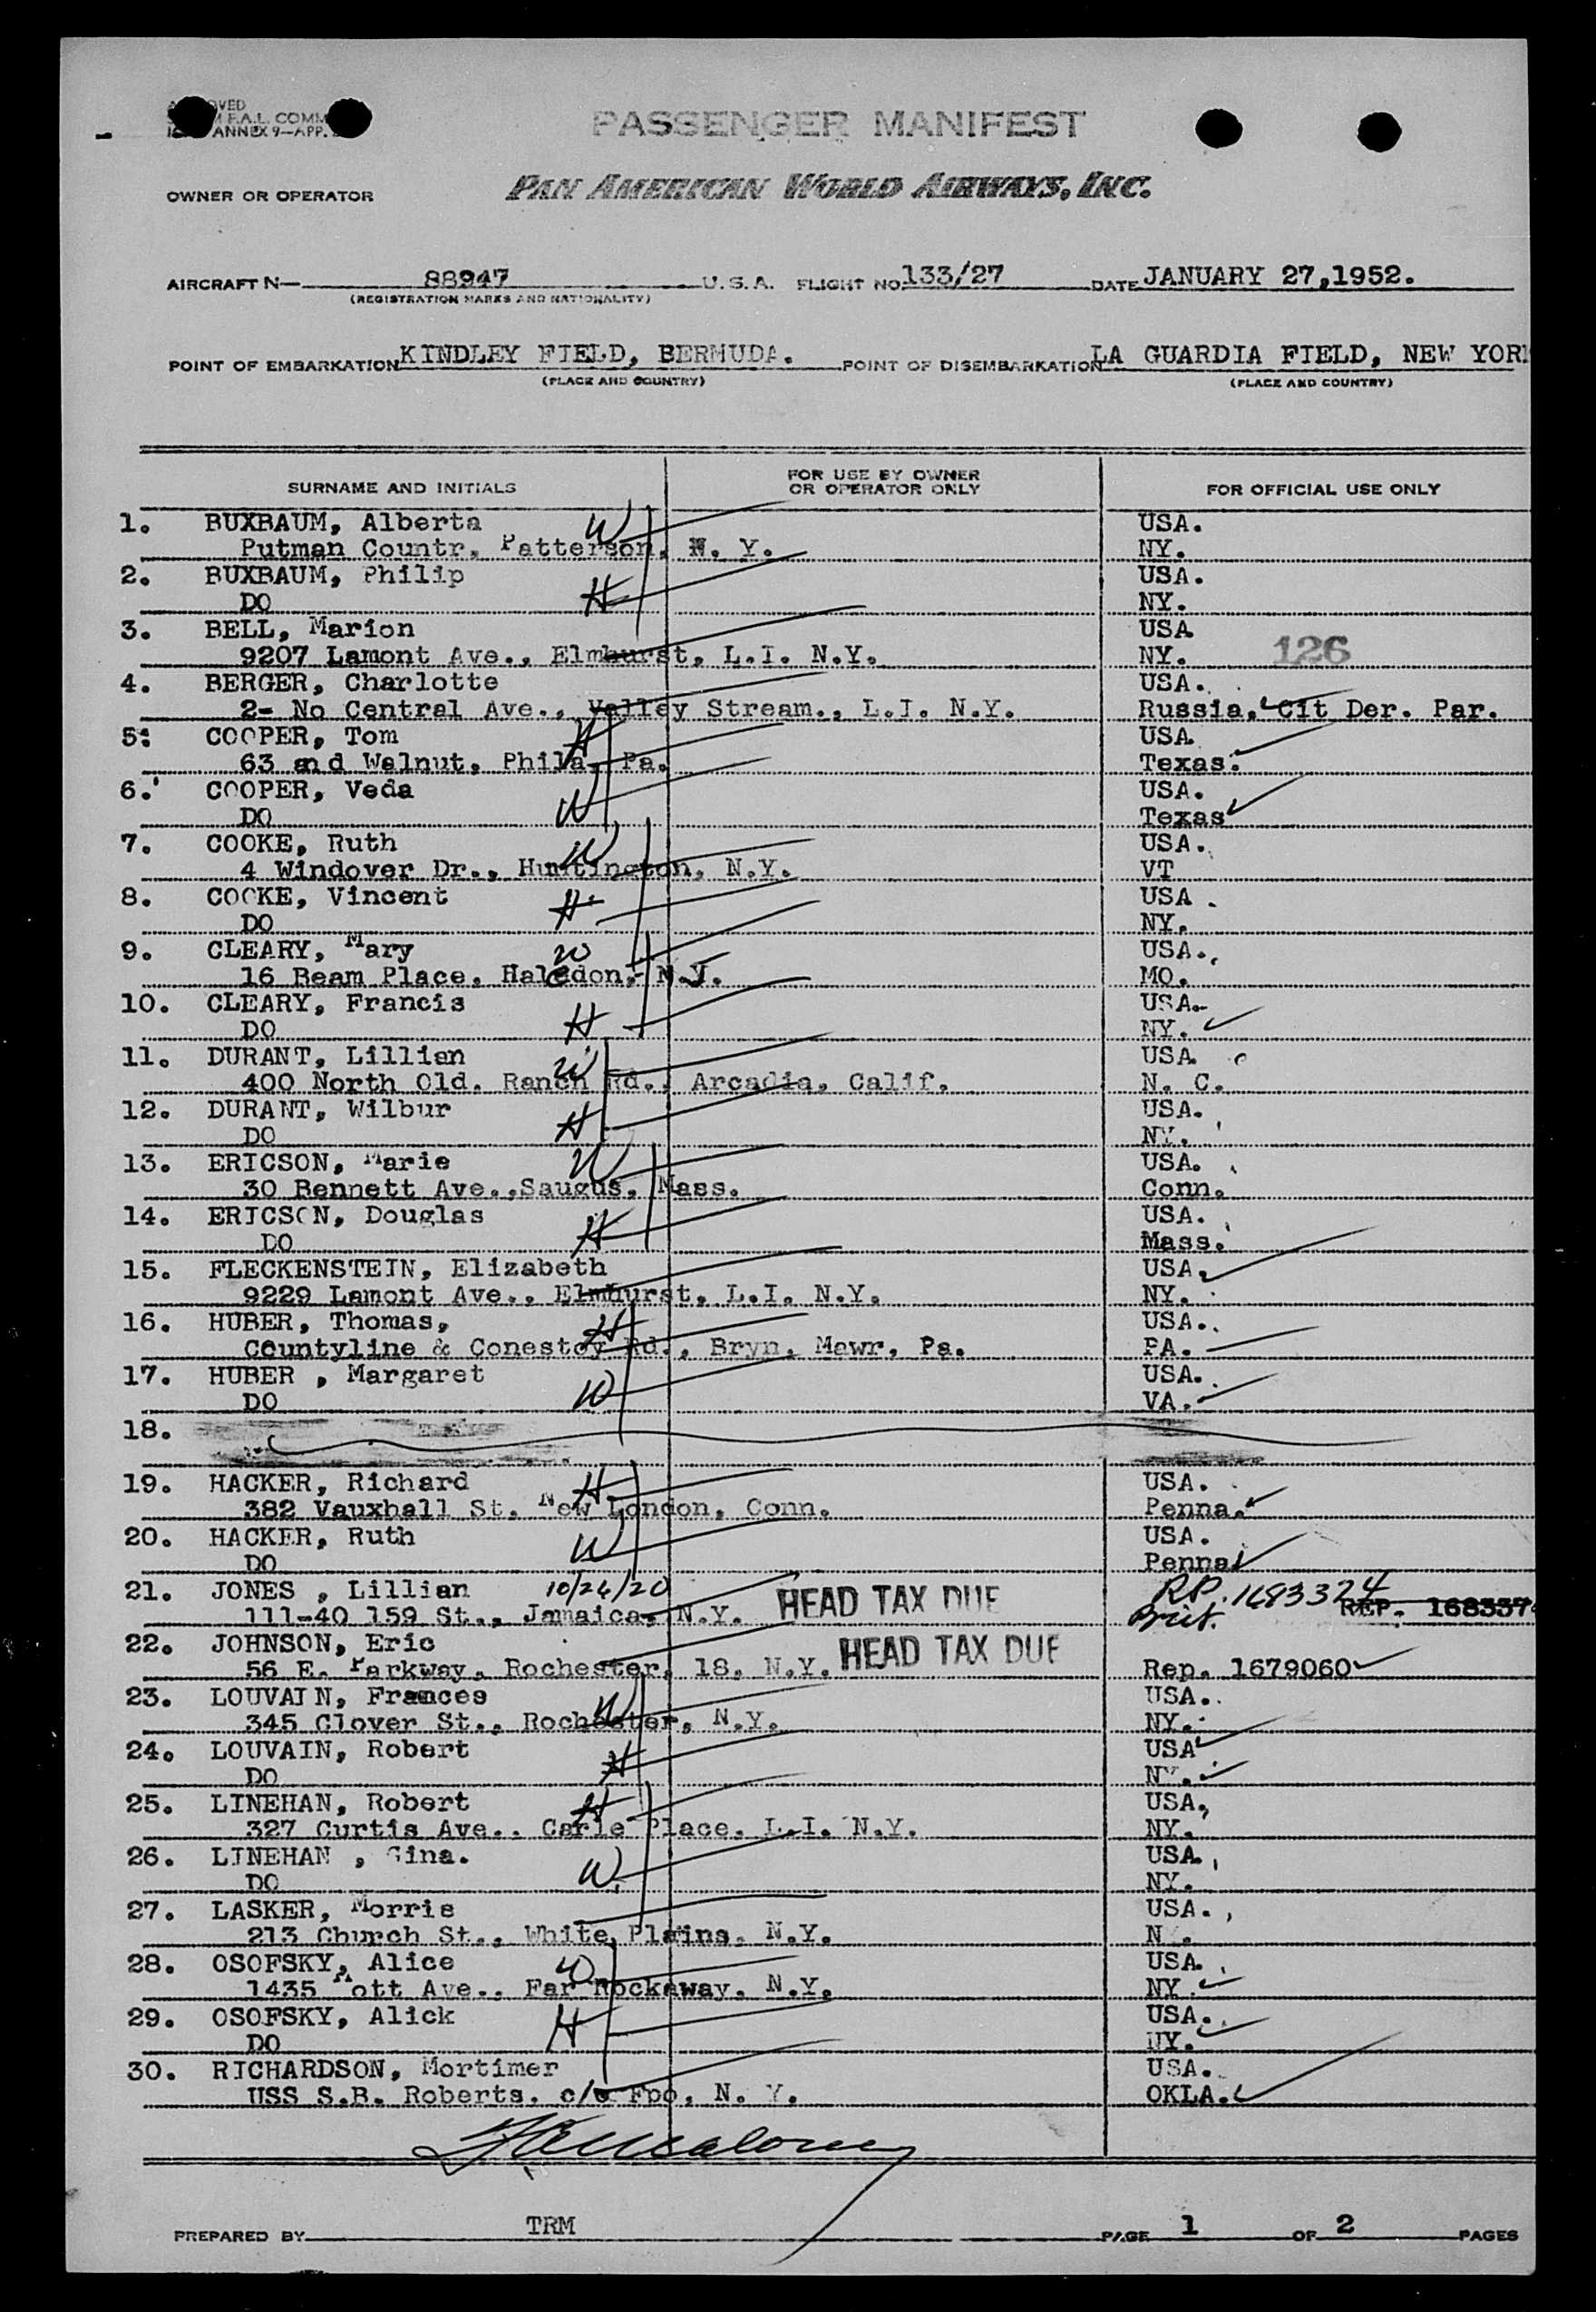 PASSENGER MANIFEST
OWNER OR OPERATOR PAN AMERICAN WORLD AIRWAYS, INC.
AIRCRAFT N— 88947 U.S.A. FLIGHT NO. 133/27 DATE JANUARY 27,1952.
(REGISTRATION MARKS AND NATIONALITY)
POINT OF EMBARKATION KINDLEY FIELD, BERMUDA. POINT OF DISEMBARKATION LA GUARDIA FIELD, NEW YORK
(PLACE AND COUNTRY) (PLACE AND COUNTRY)
SURNAME AND INITIALS FOR USE BY OWNER OR OPERATOR ONLY FOR OFFICIAL USE ONLY
1. BUXBAUM, Alberta W USA.
Putman Countr. Patterson, N. Y. NY.
2. BUXBAUM, Philip USA.
DO H NY.
3. BELL, Marion USA
9207 Lamont Ave., Elmhurst, L.I. N.Y. NY. 126
4. BERGER, Charlotte USA.
2- No Central Ave., Valley Stream., L.I. N.Y. Russia, Cit Der. Par.
5. COOPER, Tom H USA
63 and Walnut, Phila, Pa. Texas.
6. COOPER, Veda USA.
DO W Texas
7. COOKE, Ruth W USA.
4 Windover Dr., Huntington, N.Y. VT
8. COOKE, Vincent H USA.
DO NY.
9. CLEARY, Mary W USA.
16 Beam Place. Haledon, N.J. MO.
10. CLEARY, Francis USA.
DO H NY.
11. DURANT, Lillian W USA
400 North Old. Ranch Rd., Arcadia, Calif. N. C.
12. DURANT, Wilbur H USA.
DO NY.
13. ERICSON, Marie W USA.
30 Bennett Ave.,Saugus, Mass. Conn.
14. ERICSON, Douglas H USA.
DO Mass.
15. FLECKENSTEIN, Elizabeth USA,
9229 Lamont Ave., Elmhurst, L.I. N.Y. NY.
16. HUBER, Thomas, H USA.
Countyline & Conestoy Rd., Bryn. Mawr, Pa. PA.
17. HUBER , Margaret USA.
DO W VA.
18.
19. HACKER, Richard H USA.
382 Vauxhall St. New London, Conn. Penna.
20. HACKER, Ruth W USA.
DO Penna
21. JONES , Lillian 10/26/20 HEAD TAX DUE RP. 1683324
111-40 159 St., Jamaica, N.Y. Brit. REP. 168337
22. JOHNSON, Eric HEAD TAX DUE
56 E. Parkway, Rochester, 18, N.Y. Rep. 1679060
23. LOUVAIN, Frances W USA.
345 Clover St., Rochester, N.Y. NY.
24. LOUVAIN, Robert H USA
DO NY.
25. LINEHAN, Robert H USA.
327 Curtis Ave.. Carle Place. L.I. N.Y. NY.
26. LINEHAN , Gina. W. USA.
DO NY.
27. LASKER, Morris USA.
213 Church St., White Plains, N.Y. N .
28. OSOFSKY, Alice W USA.
1435 ott Ave., Far Rockaway, N.Y. NY.
29. OSOFSKY, Alick H USA.
DO NY.
30. RICHARDSON, Mortimer USA.
USS S.B. Roberts, c/o Fpo, N. Y. OKLA.
PREPARED BY TRM PAGE 1 OF 2 PAGES